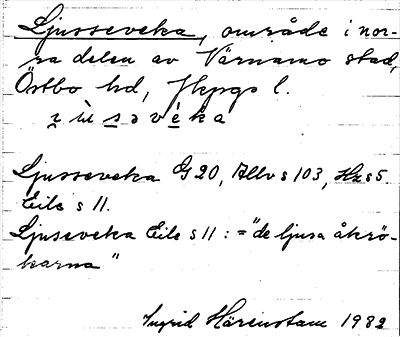 Ljusseveka, område i nor-
ra delen av Värnamo stad,
Östbo hd, Jkpgs l.
Ljusseveka G 20, Allv s 103, Hz s 5.
Eile s 11.
Ljuseveka Eile s 11 : = "de ljusa åkrö-
karna"
Ingrid Härenstam 1982